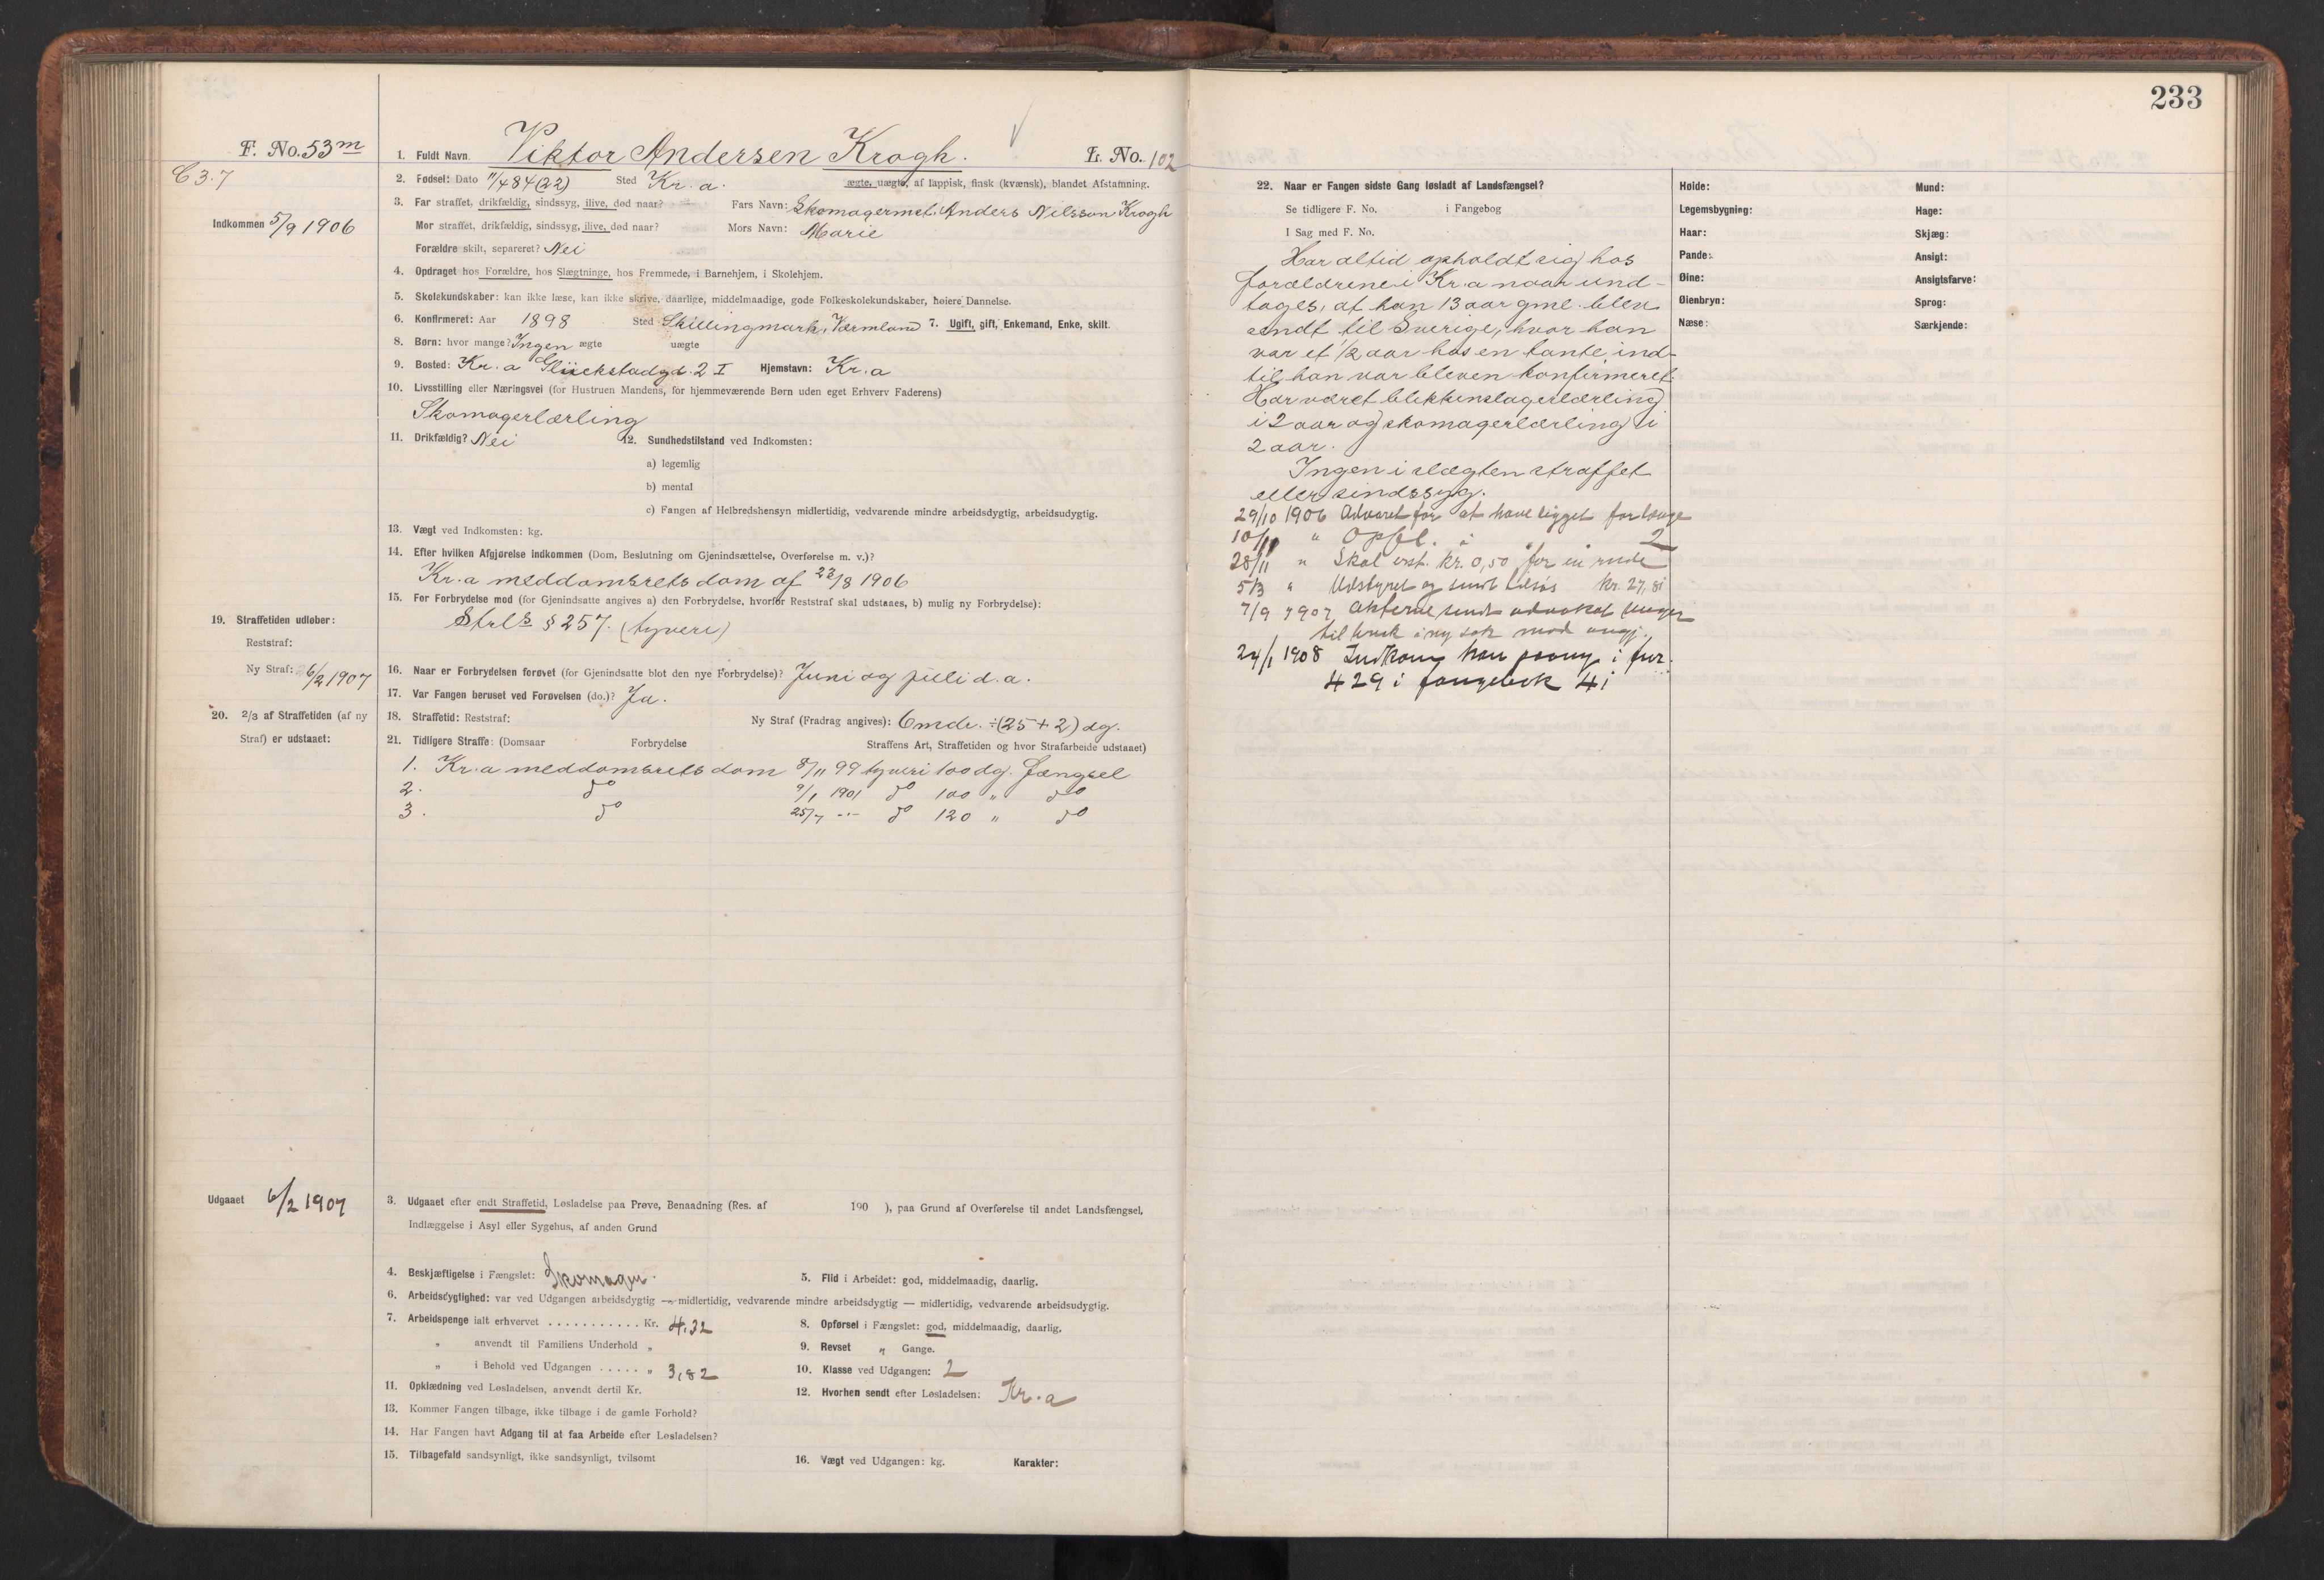 233
F. No. 53m
1. Fuldt Navn. Viktor Andersen Krogh. L. No. 102
C 3.7
2. Fødsel: Dato 11/4 84 (22) Sted Kr.a. ægte, uægte, af lappisk, finsk (kvænsk), blandet Afstamning.
Indkommen 5/9 1906
3. Far straffet, drikfældig, sindssyg, ilive, død naar? Fars Navn: Skomagermst. Anders Nilsson Krogh
Mor straffet, drikfældig, sindssyg, ilive, død naar? Mors Navn: Marie
Forældre skilt, separeret? Nei
4. Opdraget hos Forældre, hos Slægtninge, hos Fremmede, i Barnehjem, i Skolehjem.
5. Skolekundskaber: kan ikke læse, kan ikke skrive, daarlige, middelmaadige, gode Folkeskolekundskaber, høiere Dannelse.
6. Konfirmeret: Aar 1898 Sted Skillingmark, Värmland 7. Ugift, gift, Enkemand, Enke, skilt.
8. Børn: hvor mange? Ingen ægte uægte
9. Bosted: Kr.a Glückstadgd. 2 I Hjemstavn: Kr.a
10. Livsstilling eller Næringsvei (for Hustruen Mandens, for hjemmeværende Børn uden eget Erhverv Faderens)
Skomagerlærling
11. Drikfældig? Nei 12. Sundhedstilstand ved Indkomsten:
a) legemlig
b) mental
c) Fangen af Helbredshensyn midlertidig, vedvarende mindre arbeidsdygtig, arbeidsudygtig.
13. Vægt ved Indkomsten: kg.
14. Efter hvilken Afgjørelse indkommen (Dom, Beslutning om Gjenindsættelse, Overførelse m. v.)?
Kr.a meddomsrets dom af 22/8 1906
15. For Forbrydelse mod (for Gjenindsatte angives a) den Forbrydelse, hvorfor Reststraf skal udstaaes, b) mulig ny Forbrydelse):
19. Straffetiden udløber: Strl's § 257. (tyveri)
Reststraf:
Ny Straf: 6/2 1907
16. Naar er Forbrydelsen forøvet (for Gjenindsatte blot den nye Forbrydelse)? Juni og juli d.a.
17. Var Fangen beruset ved Forøvelsen (do.)? Ja.
20. 2/3 af Straffetiden (af ny
18. Straffetid: Reststraf: Ny Straf (Fradrag angives): 6 mdr. ÷ (25 + 2) dg.
Straf) er udstaaet:
21. Tidligere Straffe: (Domsaar Forbrydelse Straffens Art, Straffetiden og hvor Strafarbeide udstaaet)
1. Kr.a meddomsrets dom 8/11 99 tyveri 100 dg. fængsel
2. do 9/1 1901 do 100 " do
3. do 25/7 -"- do 120 " do
Udgaaet 6/2 1907
3. Udgaaet efter endt Straffetid, Løsladelse paa Prøve, Benaadning (Res. af 190 ), paa Grund af Overførelse til andet Landsfængsel,
Indlæggelse i Asyl eller Sygehus, af anden Grund
4. Beskjæftigelse i Fængslet: Skomager. 5. Flid i Arbeidet: god, middelmaadig, daarlig.
6. Arbeidsdygtighed: var ved Udgangen arbeidsdygtig — midlertidig, vedvarende mindre arbeidsdygtig — midlertidig, vedvarende arbeidsudygtig.
7. Arbeidspenge ialt erhvervet . . . . . . . . . . . Kr. 4,32 8. Opførsel i Fængslet: god, middelmaadig, daarlig.
" anvendt til Familiens Underhold " 9. Revset " Gange.
" i Behold ved Udgangen . . . . . " 3,82 10. Klasse ved Udgangen: 2
11. Opklædning ved Løsladelsen, anvendt dertil Kr. 12. Hvorhen sendt efter Løsladelsen: Kr.a
13. Kommer Fangen tilbage, ikke tilbage i de gamle Forhold?
14. Har Fangen havt Adgang til at faa Arbeide efter Løsladelsen?
15. Tilbagefald sandsynligt, ikke sandsynligt, tvilsomt 16. Vægt ved Udgangen: kg. Karakter:
22. Naar er Fangen sidste Gang løsladt af Landsfængsel?
Se tidligere F. No. i Fangebog
I Sag med F. No.
Har altid opholdt sig hos
forældrene i Kr.a naar und-
tages, at han 13 aar gml. blev
sendt til Sverige, hvor han
var et 1/2 aar hos en tante, ind-
til han var bleven konfirmeret.
Har været blikkenslagerlærling
i 2 aar og skomagerlærling i
2 aar.
Ingen i slægten straffet
eller sindssyg.
29/10 1906 Advaret for at have ligget for længe
10/11 " Opfl. i 2
28/11 " Skal erst. kr. 0,50 for en rude
5/3 " Udstyret og sendt kr. 27,81
7/9 1907 Akterne sendt advokat
til bruk i ny sak mod angj.
24/1 1908 Indkom han paany i fnr.
429 i fangebok 4i
Høide:
Legemsbygning:
Haar:
Pande:
Øine:
Øienbryn:
Næse:
Mund:
Hage:
Skjæg:
Ansigt:
Ansigtsfarve:
Sprog:
Særkjende: